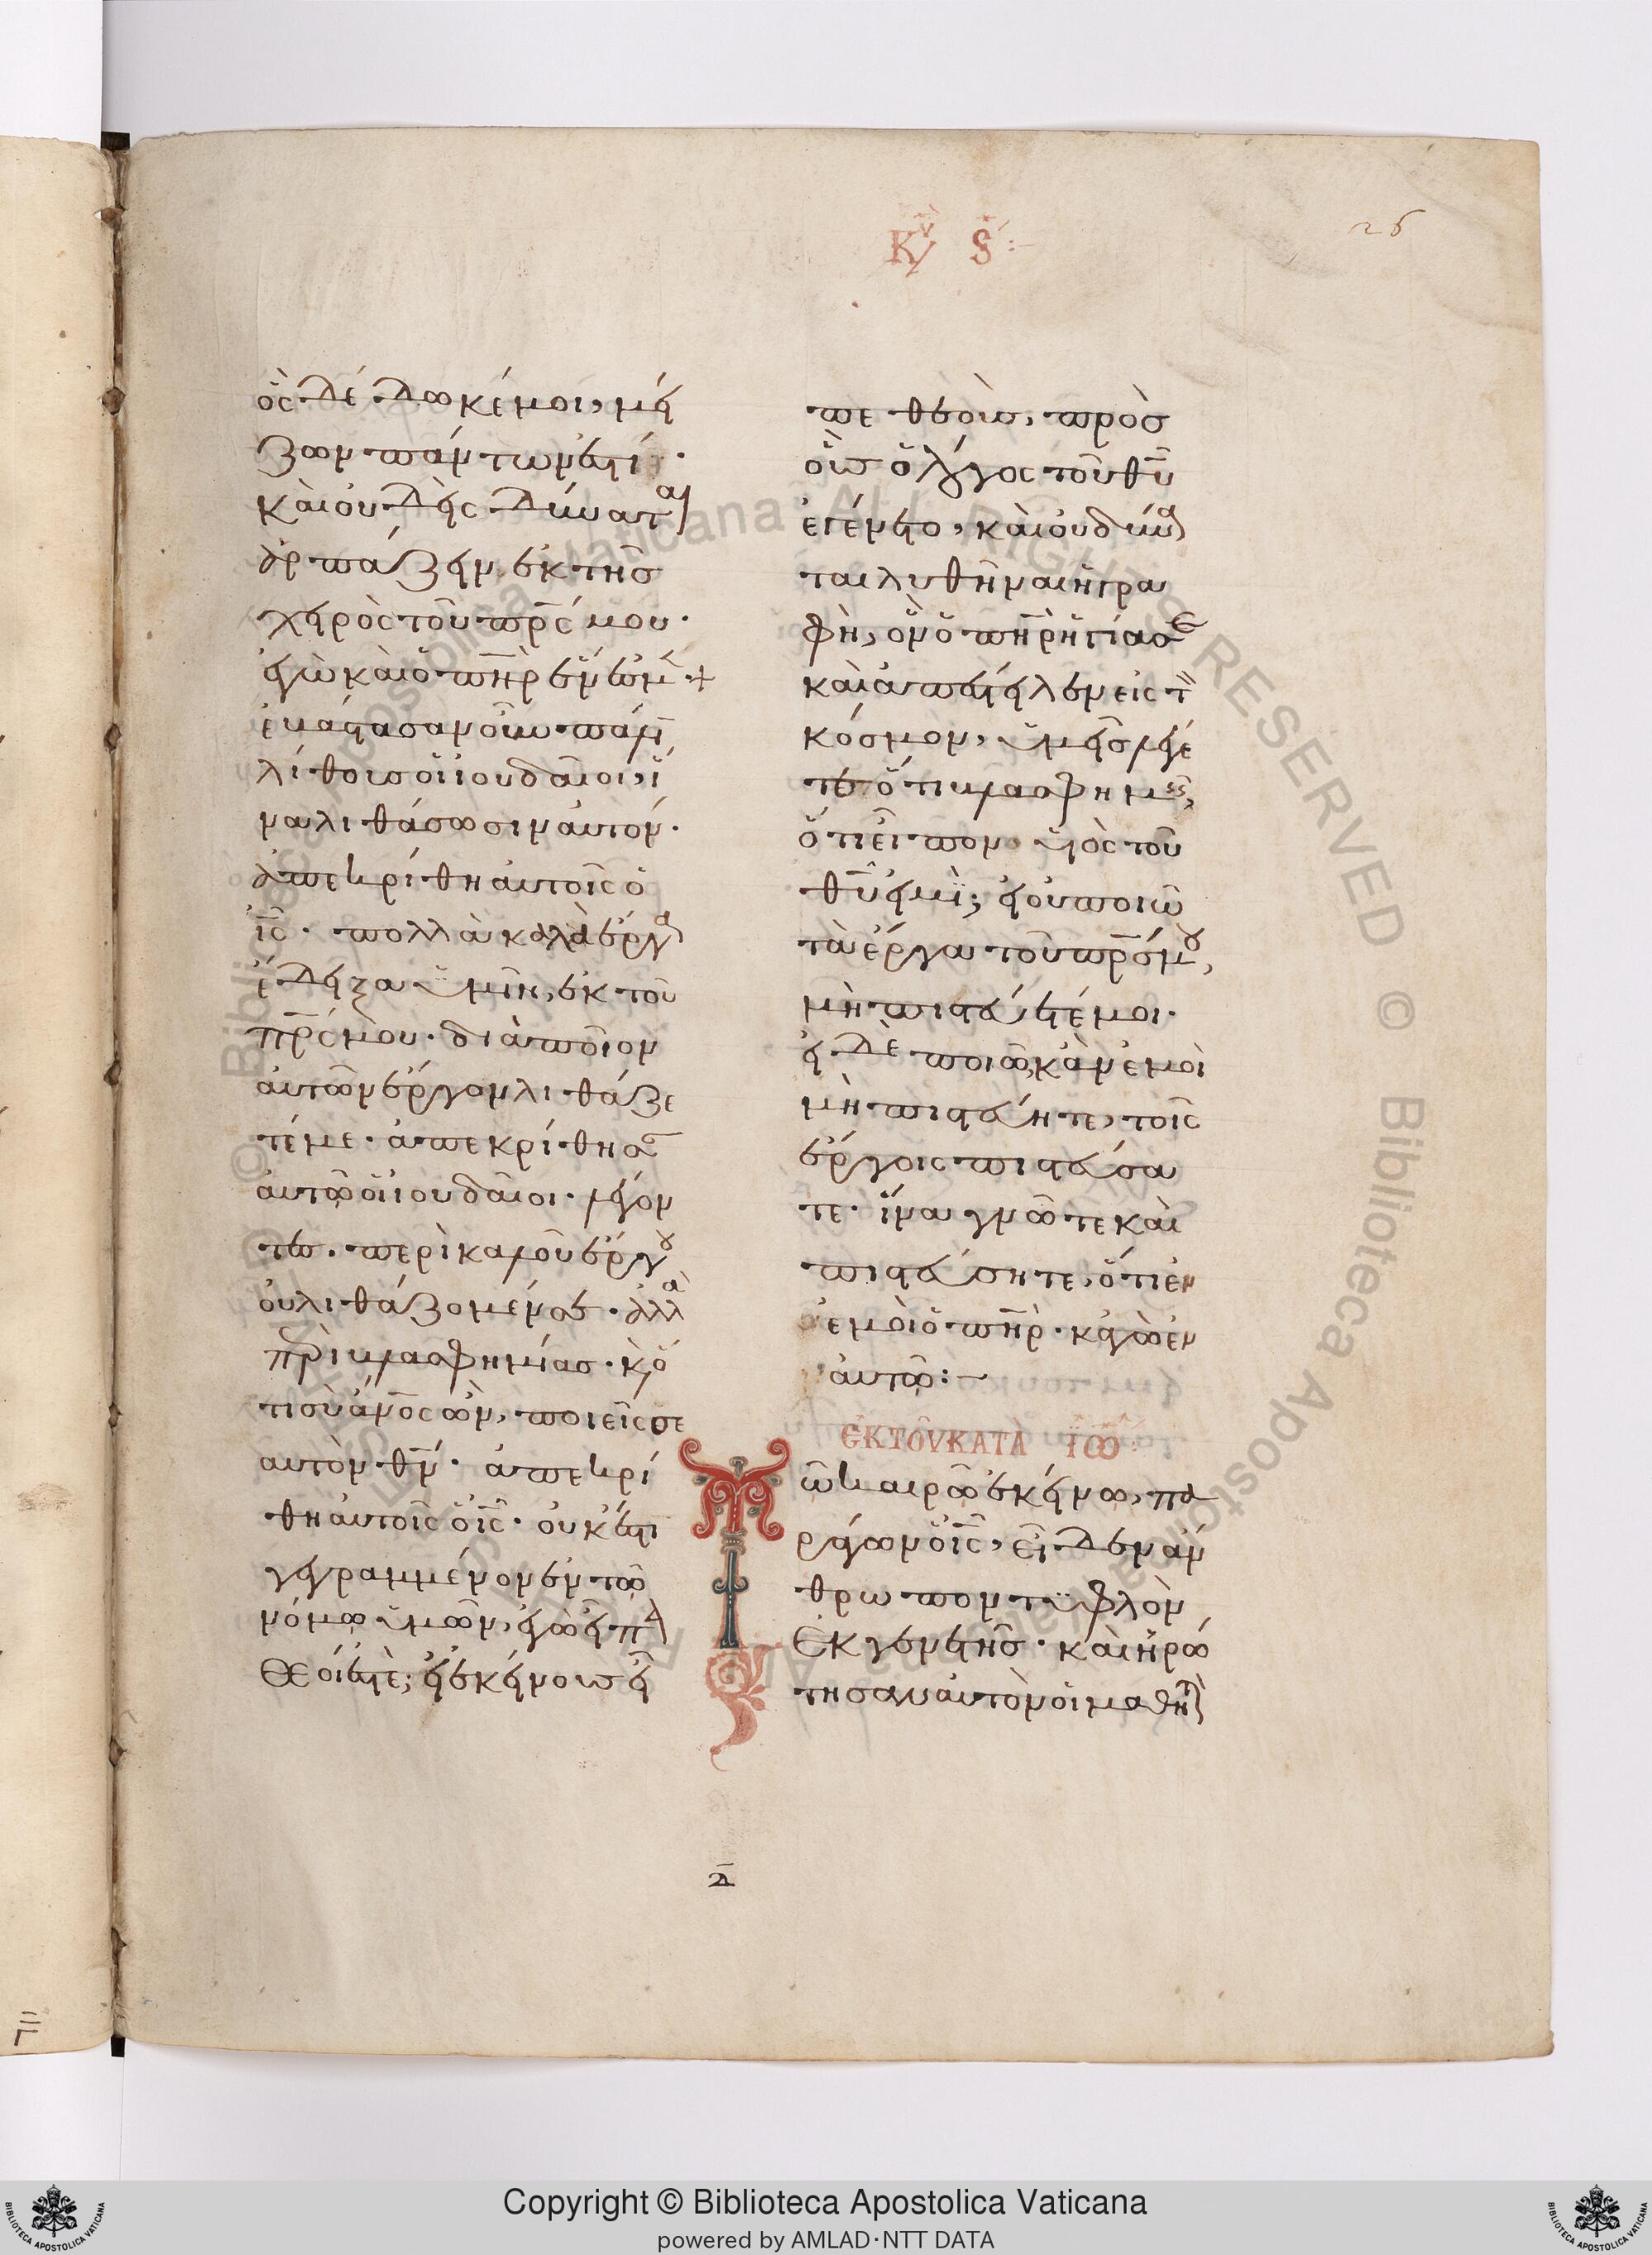 Κυ ϛ :-
26
ὃς δέδωκέ μοι, μεί
ζων πάντων ἐστί·
καὶ οὐδεὶς δύναται
ἁρπάζειν ἐκ τῆς
χειρὸς τοῦ πρ̅ς μου·
ἐγὼ καὶ ὁ πη̅ρ ἕν ἐσμ̅· +
ἐβάστασαν οὖν πάλι̅
λίθους οἱ ἰουδαῖοι, ἵ
να λιθάσωσιν αὐτόν·
ἀπεκρίθη αὐτοῖς ὁ
ι̅ς· πολλὰ καλὰ ἔργα
ἔδειξα ὑμῖν, ἐκ τοῦ
πρ̅ς μου· διὰ ποῖον
αὐτῶν ἔργον λιθάζε
τέ με· ἀπεκρίθησ
αὐτῷ οἱ ἰουδαῖοι· λέγον
τες· περὶ καλοῦ ἔργου
οὐ λιθάζομέν σε· ἀλλὰ
περὶ βλασφημίας· κ ὅ
τι σὺ ἄν̅ος ὢν, ποιεῖς σε
αὐτὸν θ̅ν· ἀπεκρί
θη αὐτοῖς ὁ ι̅ς· οὐκ ἔστι
γεγραμμένον ἐν τῷ
νόμῳ ὑμῶν, ἐγὼ εἶπα
θεοί ἐστε; εἰ ἐκείνους εἶ
πε θεοὺς, πρὸς
οὓς ὁ λόγος τοῦ θ̅υ
ἐγένετο, καὶ οὐ δύνα
ται λυθῆναι ἡ γρα
φὴ, ὃν ὁ πη̅ρ ἡγίασε
καὶ ἀπέστειλεν εἰς τ
κόσμον, ὑμεῖς λέγε
τε ὅτι βλασφημεῖς,
ὅτι εἶπον υἱὸς τοῦ
θ̅υ εἰμϊ; εἰ οὐ ποιῶ
τὰ ἔργα τοῦ πρ̅ς μου,
μὴ πιστεύετέ μοι·
εἰ δὲ ποιῶ, κἂν ἐμοὶ
μὴ πιστεύητε, τοῖς
ἔργοις πιστεύσα
τε· ἵνα γνῶτε καὶ
πιστεύσητε, ὅτι ἐν
ἐμοὶ ὁ πη̅ρ· κἀγὼ ἐν
αὐτῷ:-
ἐκ τοῦ κατὰ ϊω:
Τῶ καιρῷ ἐκείνῳ, πα
ράγων ὁ ι̅ς, εἶδεν ἄν
θρωπον τϋφλὸν
ἐκ γενετῆς· καὶ ἠρώ
τησαν αὐτὸν οἱ μαθη
δ̅
Copyright © Biblioteca Apostolica Vaticana
powered by AMLAD·NTT DATA